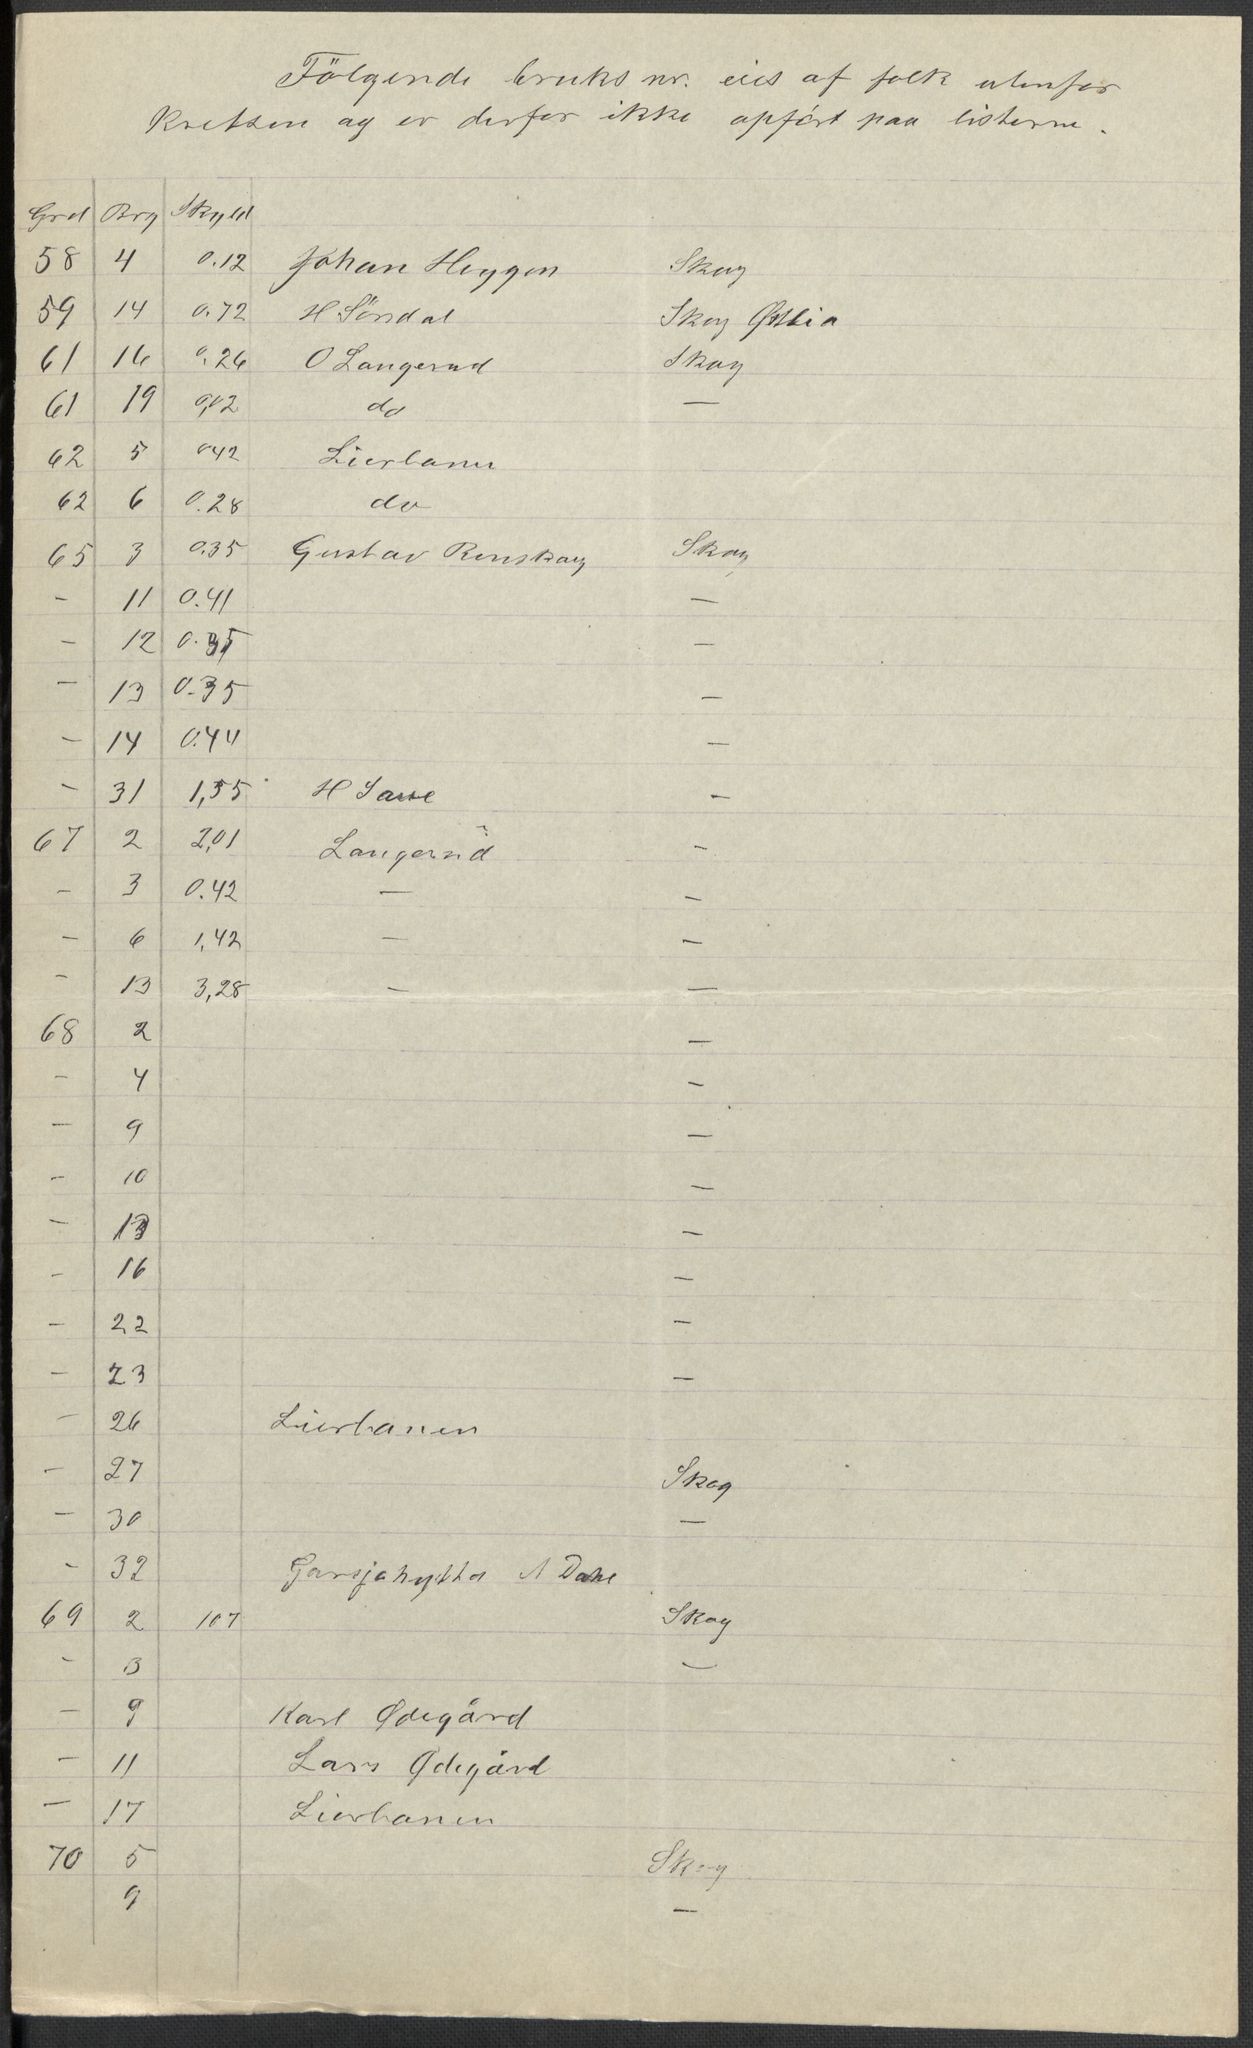 Fölgende bruks nr. eies af folk utenfor
Kretsen og er derfor ikke opført paa listerne.
Grd Brg Skyld
58 4 0.12 Johan Heggen Skog
59 14 0.72 H Sörsdal Skog Østlia
61 16 0.26 O Langerud Skog
61 19 0,02 do —
62 5 042 Lierbanen
62 6 0.28 do
65 3 0.35 Gustav Renskoug Skog
- 11 0.41 —
- 12 0.35 —
- 13 0.35 —
- 14 0.44 —
- 31 1,55 H -
67 2 2,01 Langerud -
- 3 0.42 — -
- 6 1,42 — -
- 13 3,28 - —
68 2 —
- 4 -
- 9 —
- 10 —
- 13 -
- 16 -
- 22 -
- 23 -
- 26 Lierbanen
- 27 Skog
- 30 —
- 32 Garsjøhytta A Dahl
69 2 107 Skog
- 3 —
- 9 Karl Ødegård
- 11 Lars Ødegård
- 17 Lierbanen
70 5 Skog
9 —